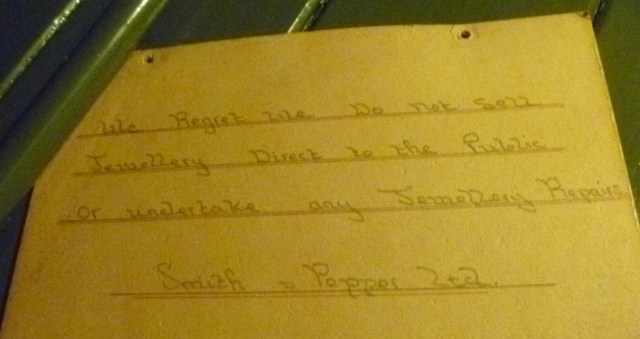 We Regret We Do Not Sell
Jewellery Direct to the Public
Or undertake any Jewellery Repairs
Smith & Pepper Ltd.